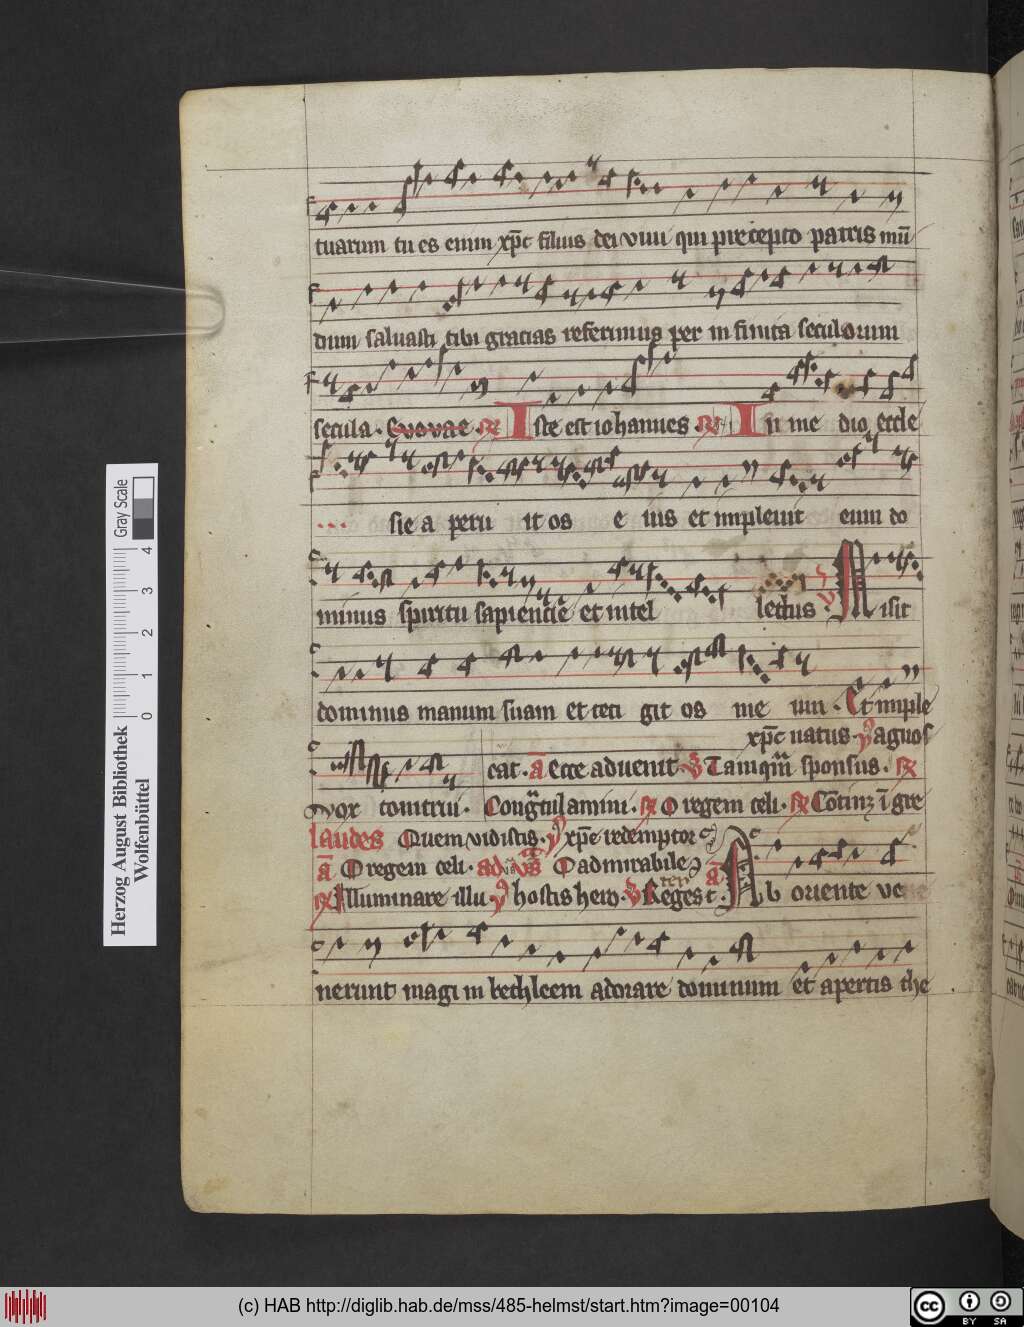 tuarum tu es enim xp̄c filius dei viui qui precepto patris mū
dum saluasti tibi gracias referimus per in finita seculorum
secula. Evovae Iste est iohannes. In me dio eccle
sie a peru it os e ius et impleuit eum do
minus spiritu sapiencie et intel lectus. Misit
dominus manum suam et teti git os me um. Et imple
xp̄c natus. agnos
cat. a Ecce aduenit Tamqm̄ sponsus.
Vox tonitrui. O regem celi.
laudes Quem vidistis. xp̄e redemptor
a O regem celi. ad O admirabile
Illuminare illu. hostis hero. Reges t. a Ab oriente ve
nerunt magi in bethleem adorare dominum et apertis the
Herzog August Bibliothek
Wolfenbüttel
Gray Scale
0 1 2 3 4
(c) HAB http://diglib.hab.de/mss/485-helmst/start.htm?image=00104
cc BY SA